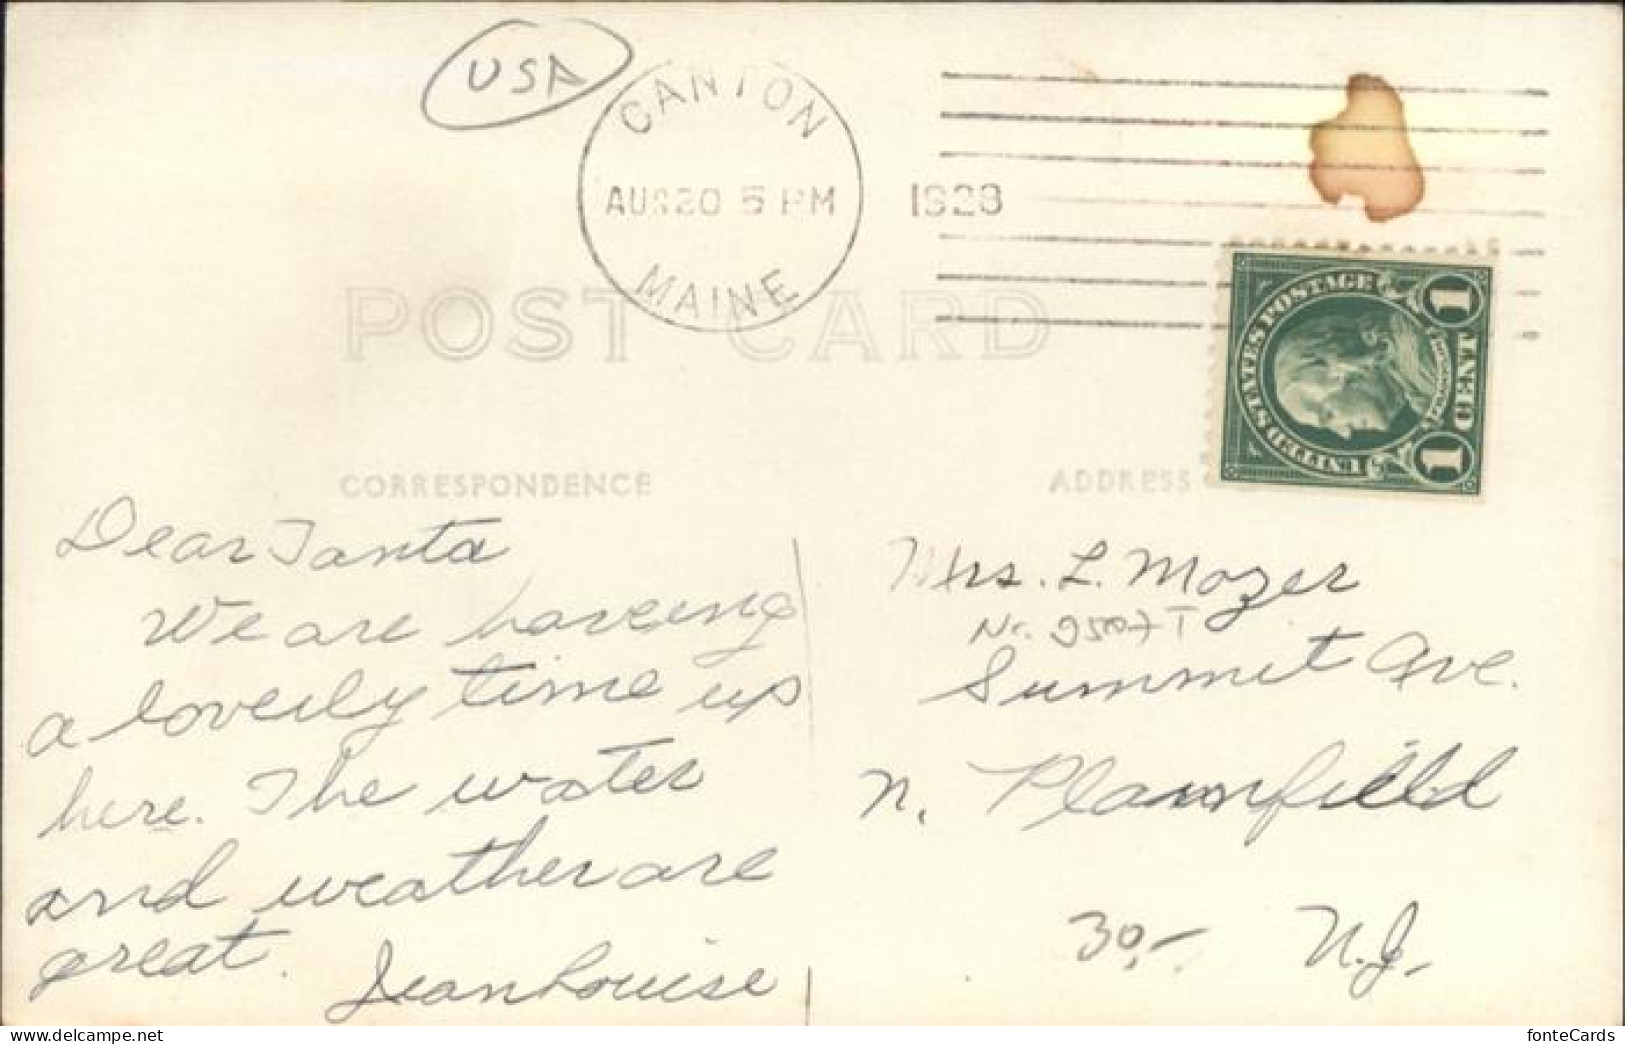 USA
CANTON
AUG 20 5 PM
1928
MAINE
POST CARD
UNITED STATES POSTAGE
FRANKLIN
1 CENT 1
CORRESPONDENCE
ADDRESS
Dear Tanta
We are having
a loverly time up
here. The water
and weather are
great.
Jean Louise
Mrs. L. Mozer
Summit Ave.
N. Plainfield
N.J.
30,-
delcampe.net
fonteCards